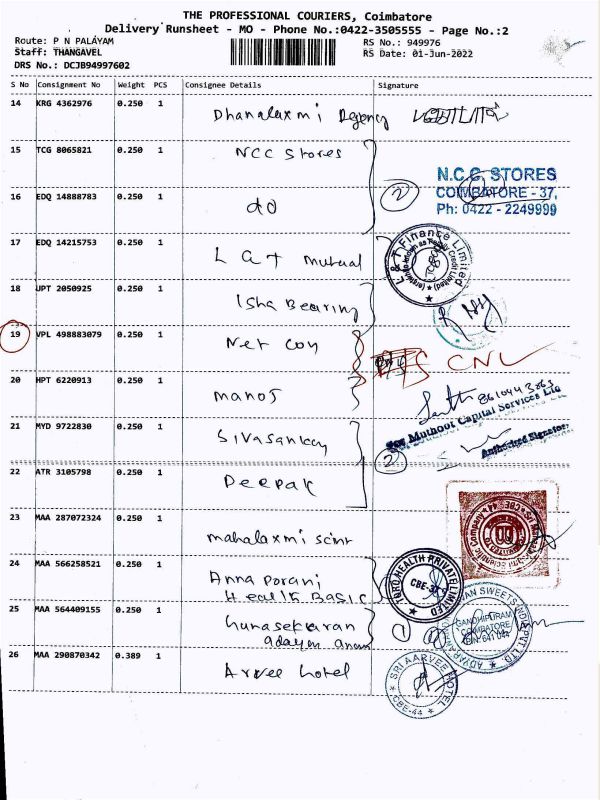 THE PROFESSIONAL COURIERS, Coimbatore
Delivery Runsheet - MO - Phone No.:0422-3505555 - Page No.:2
Route: P N PALAYAM
Staff: THANGAVEL
DRS No.: DCJB94997602
RS No.: 949976
RS Date: 01-Jun-2022
S No Consignment No Weight PCS Consignee Details Signature
14 KRG 4362976 0.250 1 Dhanalaxmi Regency
15 TCG 8065821 0.250 1 NCC Stores
N.C.C. STORES
COIMBATORE - 37,
Ph: 0422 - 2249999
2
16 EDQ 14888783 0.250 1 do
17 EDQ 14215753 0.250 1 L & T mutual
L & T Finance Limited
18 JPT 2050925 0.250 1 Isha Bearing
19 VPL 498883079 0.250 1 Net con
CNL
20 HPT 6220913 0.250 1 manoj
Muthoot Capital Services Ltd
Authorised Signatory
21 MYD 9722830 0.250 1 Sivasankar
2
22 ATR 3105798 0.250 1 Deepak
23 MAA 287072324 0.250 1 mahalaxmi scint
24 MAA 566258521 0.250 1 Anna porani
Health Basic
HEALTH PRIVATE LIMITED
CBE-
25 MAA 564409155 0.250 1 Gunasekaran
adayar anan
SWEETS INDIA PVT LTD
GANDHIPURAM
COIMBATORE
26 MAA 290870342 0.389 1 Arvee hotel
SRI AARVEE HOTEL
CBE-44